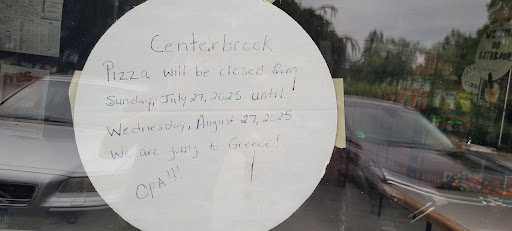 Centerbrook
Pizza will be closed from
Sunday, July 27, 2025 until
Wednesday, August 27, 2025
We are going to Greece!
OPA!!!